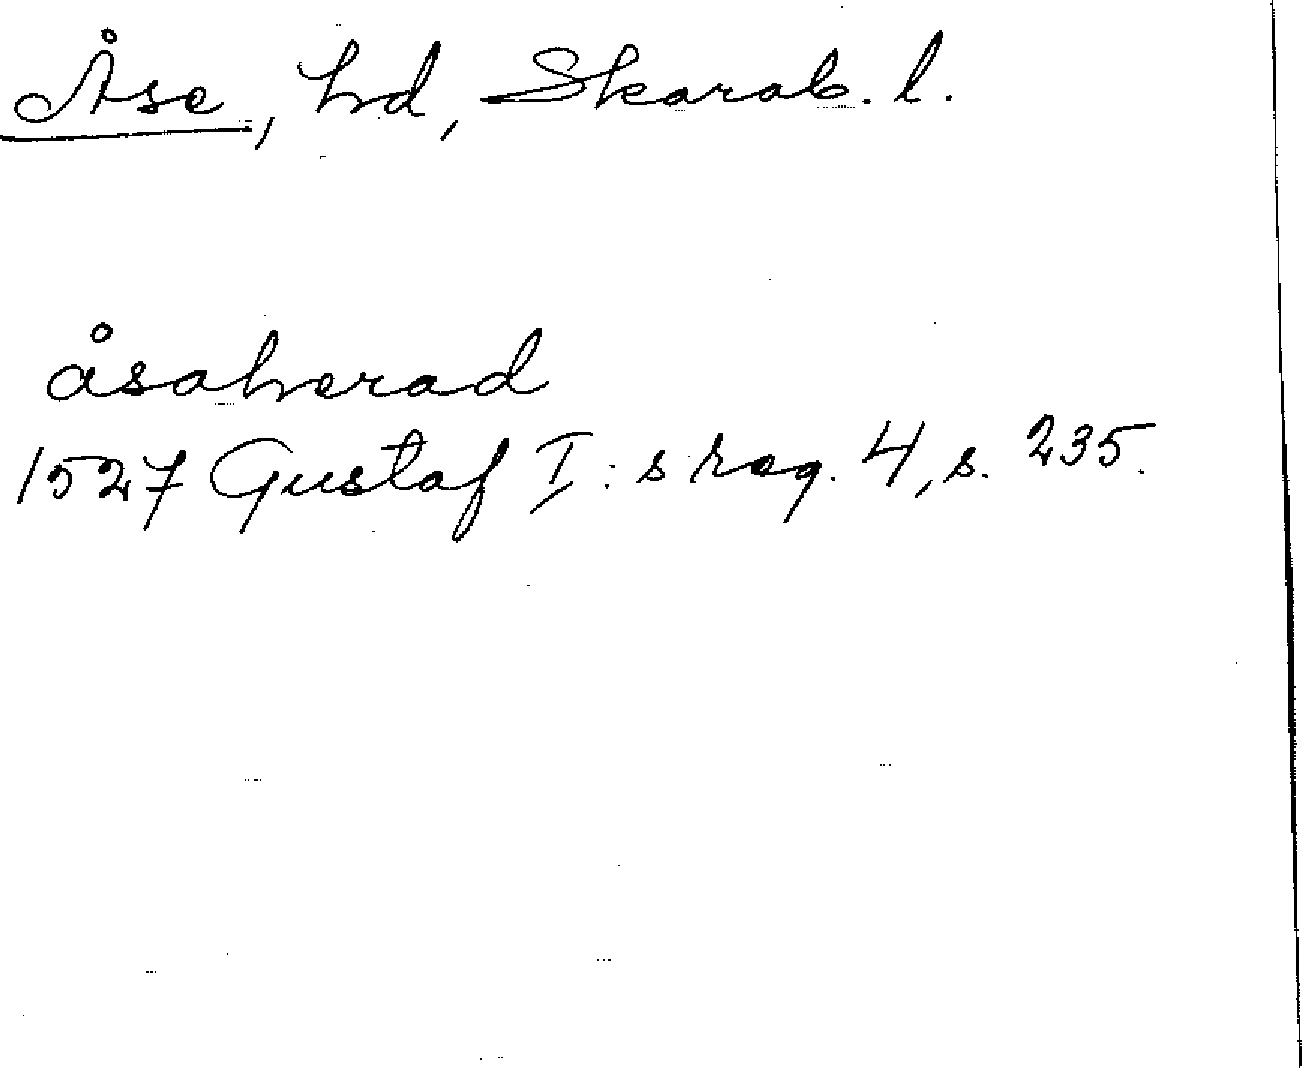 Åse, hd, Skarab. l.
åsaherad
1527 Gustaf I:s reg. 4, s. 235.